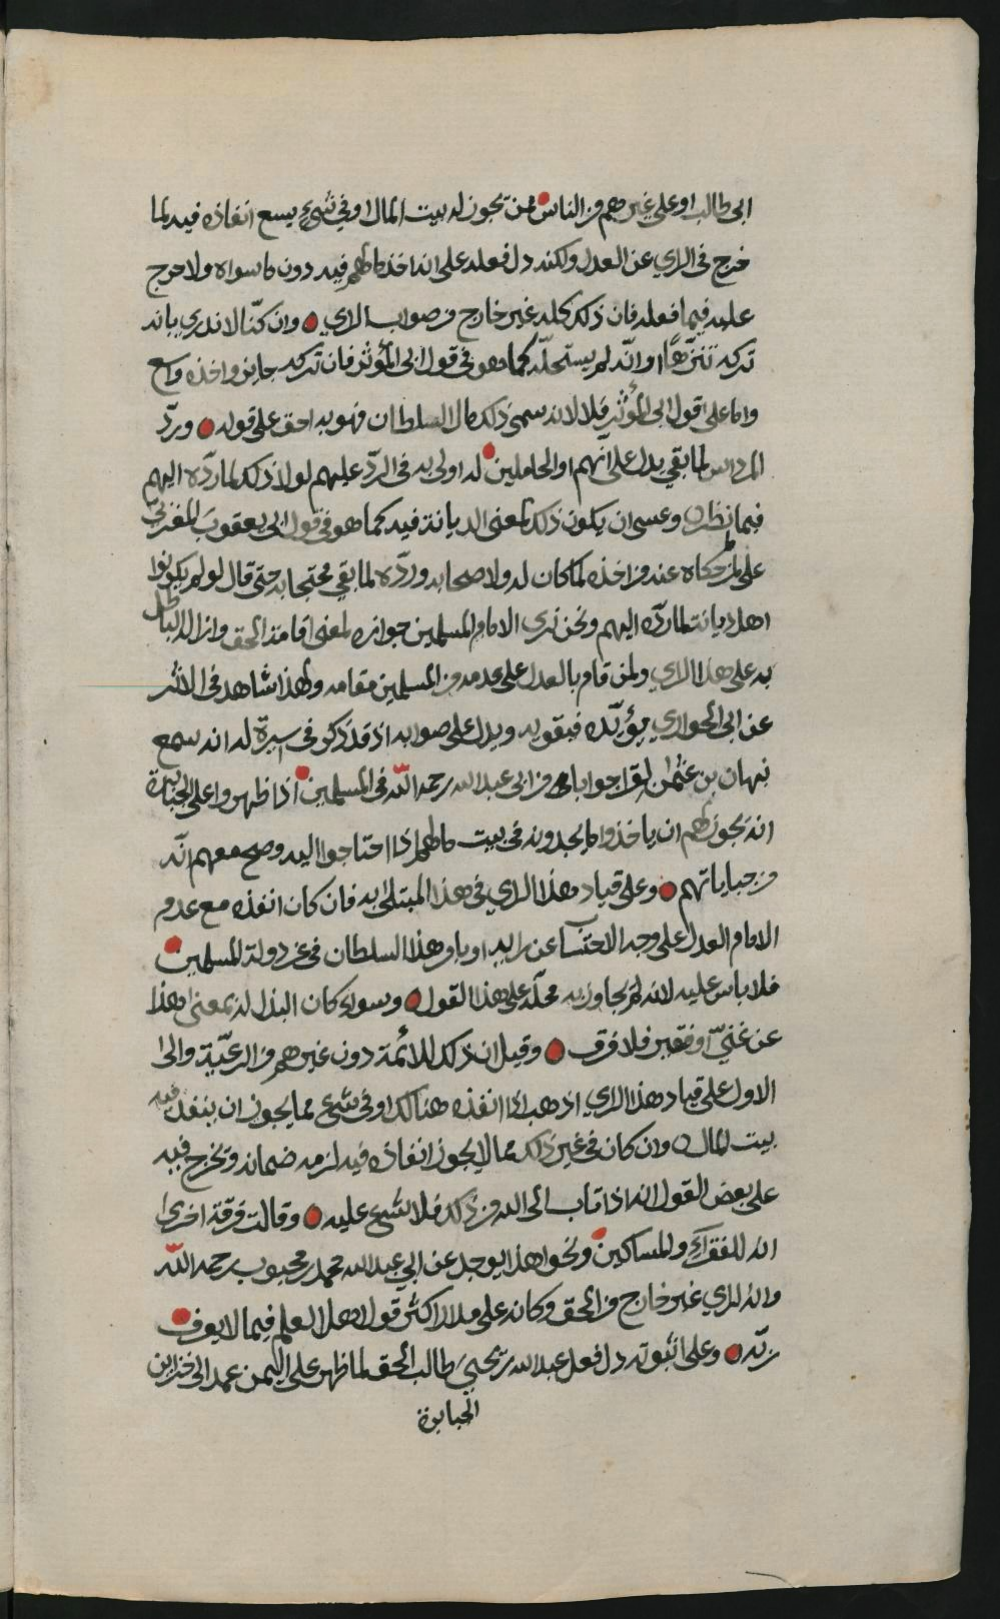 ابي طالب او على غيرهم من الناس ممن تجوز له بيت المال او في شيء يسع انفاذه فيه لما
خرج في الراي عن العدل ولكنه دل فعله على انه اخذ ما لهم فيه دون ما سواه ولا حرج
عليه فيما فعله فان ذلك كله غير خارج من صواب الراي وان كنّا لا ندري بانه
تركه تنزّهًا او انّه لم يستحلّه كما هو في قول ابي المؤثر فان تركه جايز واخذه واسع
واما على قول ابي المؤثر فلا لانه سمى ذلك مال السلطان فهو به احق على قوله وردّ
المرداس لما بقي يدل على انهم او الحاملين له اولى به في الردّ عليهم لولا ذلك لما ردّه اليهم
فيما نظره وعسى ان يكون ذلك لمعنى الديانة فيه كما هو في قول ابي يعقوب المغربيّ
على ما حكاه عنه من اخذه لما كان له ولاصحابه وردّه لما بقي محتجا به حتى قال لو لم يكونوا
اهل ديانة لما ردّه اليهم ونحن نرى الامام المسلمين جوازه لمعنى اقامة الحق وازالة الباطل
به على هذا الراي ولمن قام بالعدل على عدمه من المسلمين مقامه ولهذا شاهد في الاثر
عن ابي الحواري يؤيّده فيقويه ويدل على صوابه اذ قد ذكر في سيرة له انه سمع
نبهان بن عثمن يقرا جوابا من ابي عبد الله رحمه الله في المسلمين اذا ظهروا على الجبابرة
انه يجوز لهم ان ياخذوا ما يجدونه في بيت مالهم اذا احتاجوا اليه وصح معهم انّه
من جباياتهم وعلى قياد هذا الراي في هذا المبتلى به فان كان انفذه مع عدم
الامام العدل على وجه الاحتساب عن رايه او بامر هذا السلطان في عز دولة المسلمين
فلا باس عليه لانه لم يجاوز به محلّه على هذا القول وسواء كان البذل له بمعنى هذا
عن غنيّ او فقير فلا فرق وقيل ان ذلك للائمة دون غيرهم من الرعيّة والى
الاول على قياد هذا الراي اذهب اذا انفذه هنالك او في شيء مما يجوز ان ينفذ فيه
بيت المال وان كان في غير ذلك مما لا يجوز انفاذه فيه لزمه ضمانه وتخرج فيه
على بعض القول انه اذا تاب الى الله من ذلك فلا شيء عليه وقالت فرقة اخرى
انه للفقراء والمساكين ونحو هذا يوجد عن ابي عبد الله محمد بن محبوب رحمه الله
وانه لراي غير خارج من الحق وكانه على هذا اكثر قول اهل العلم فيما لا يعرف
ربّه وعلى ثبوته دل فعل عبد الله بن يحيى طالب الحق لما ظهر على اليمن عمد الى خزاين
الجبابرة